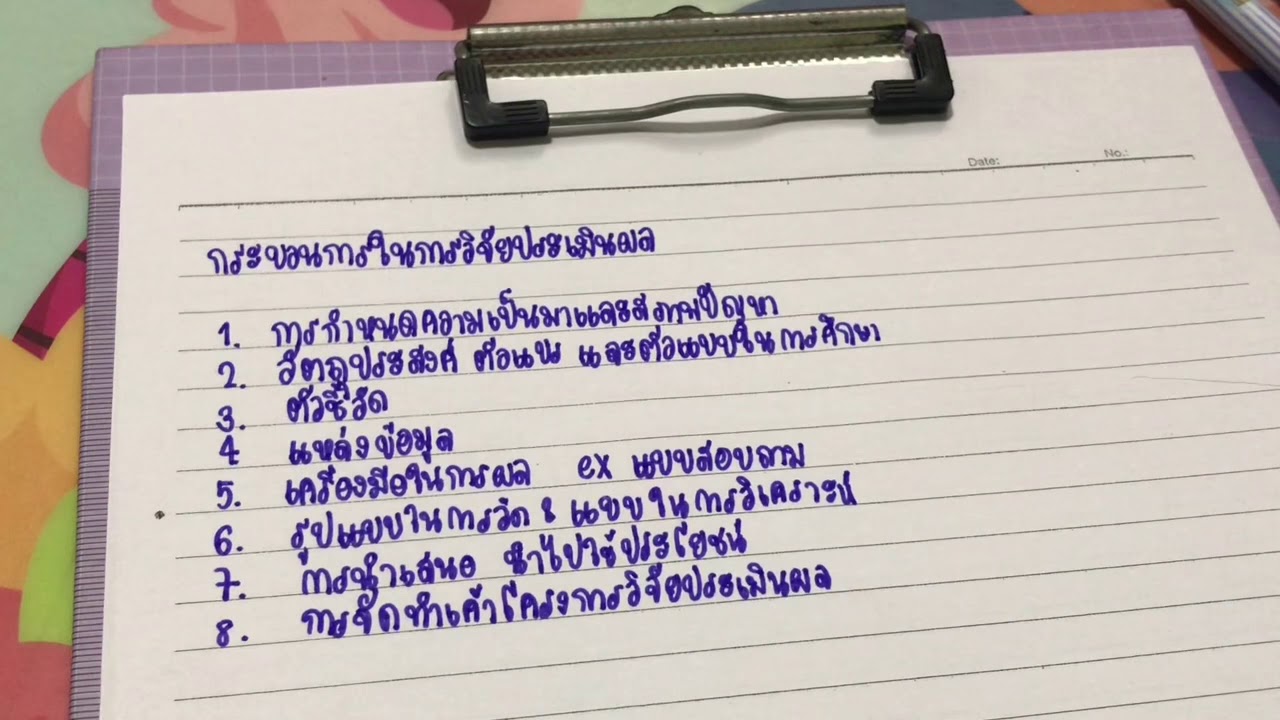 Date: No.:
กระบวนการในการวิจัยประเมินผล
1. การกำหนดความเป็นมาและสภาพปัญหา
2. วัตถุประสงค์ ตัวแปร และตัวแบบในการศึกษา
3. ตัวชี้วัด
4 แหล่งข้อมูล
5. เครื่องมือในการผล ex แบบสอบถาม
6. รูปแบบในการวัด & แบบในการวิเคราะห์
7. การนำเสนอ นำไปใช้ประโยชน์
8. การจัดทำเค้าโครงการวิจัยประเมินผล